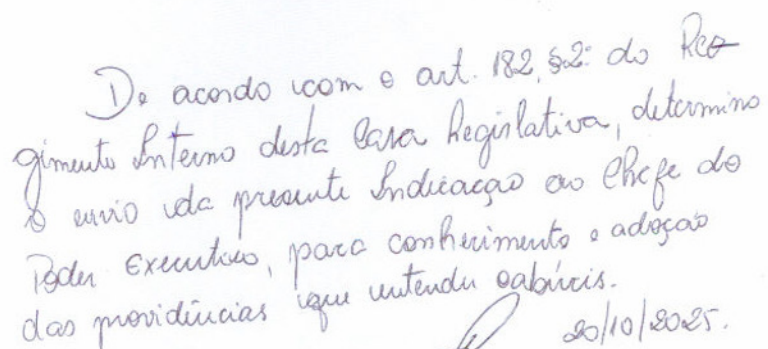 De acordo com o art. 182, §2º do Re-
gimento Interno desta Casa Legislativa, determino
o envio da presente Indicação ao Chefe do
Poder Executivo, para conhecimento e adoção
das providências que entender cabíveis.
20/10/2025.